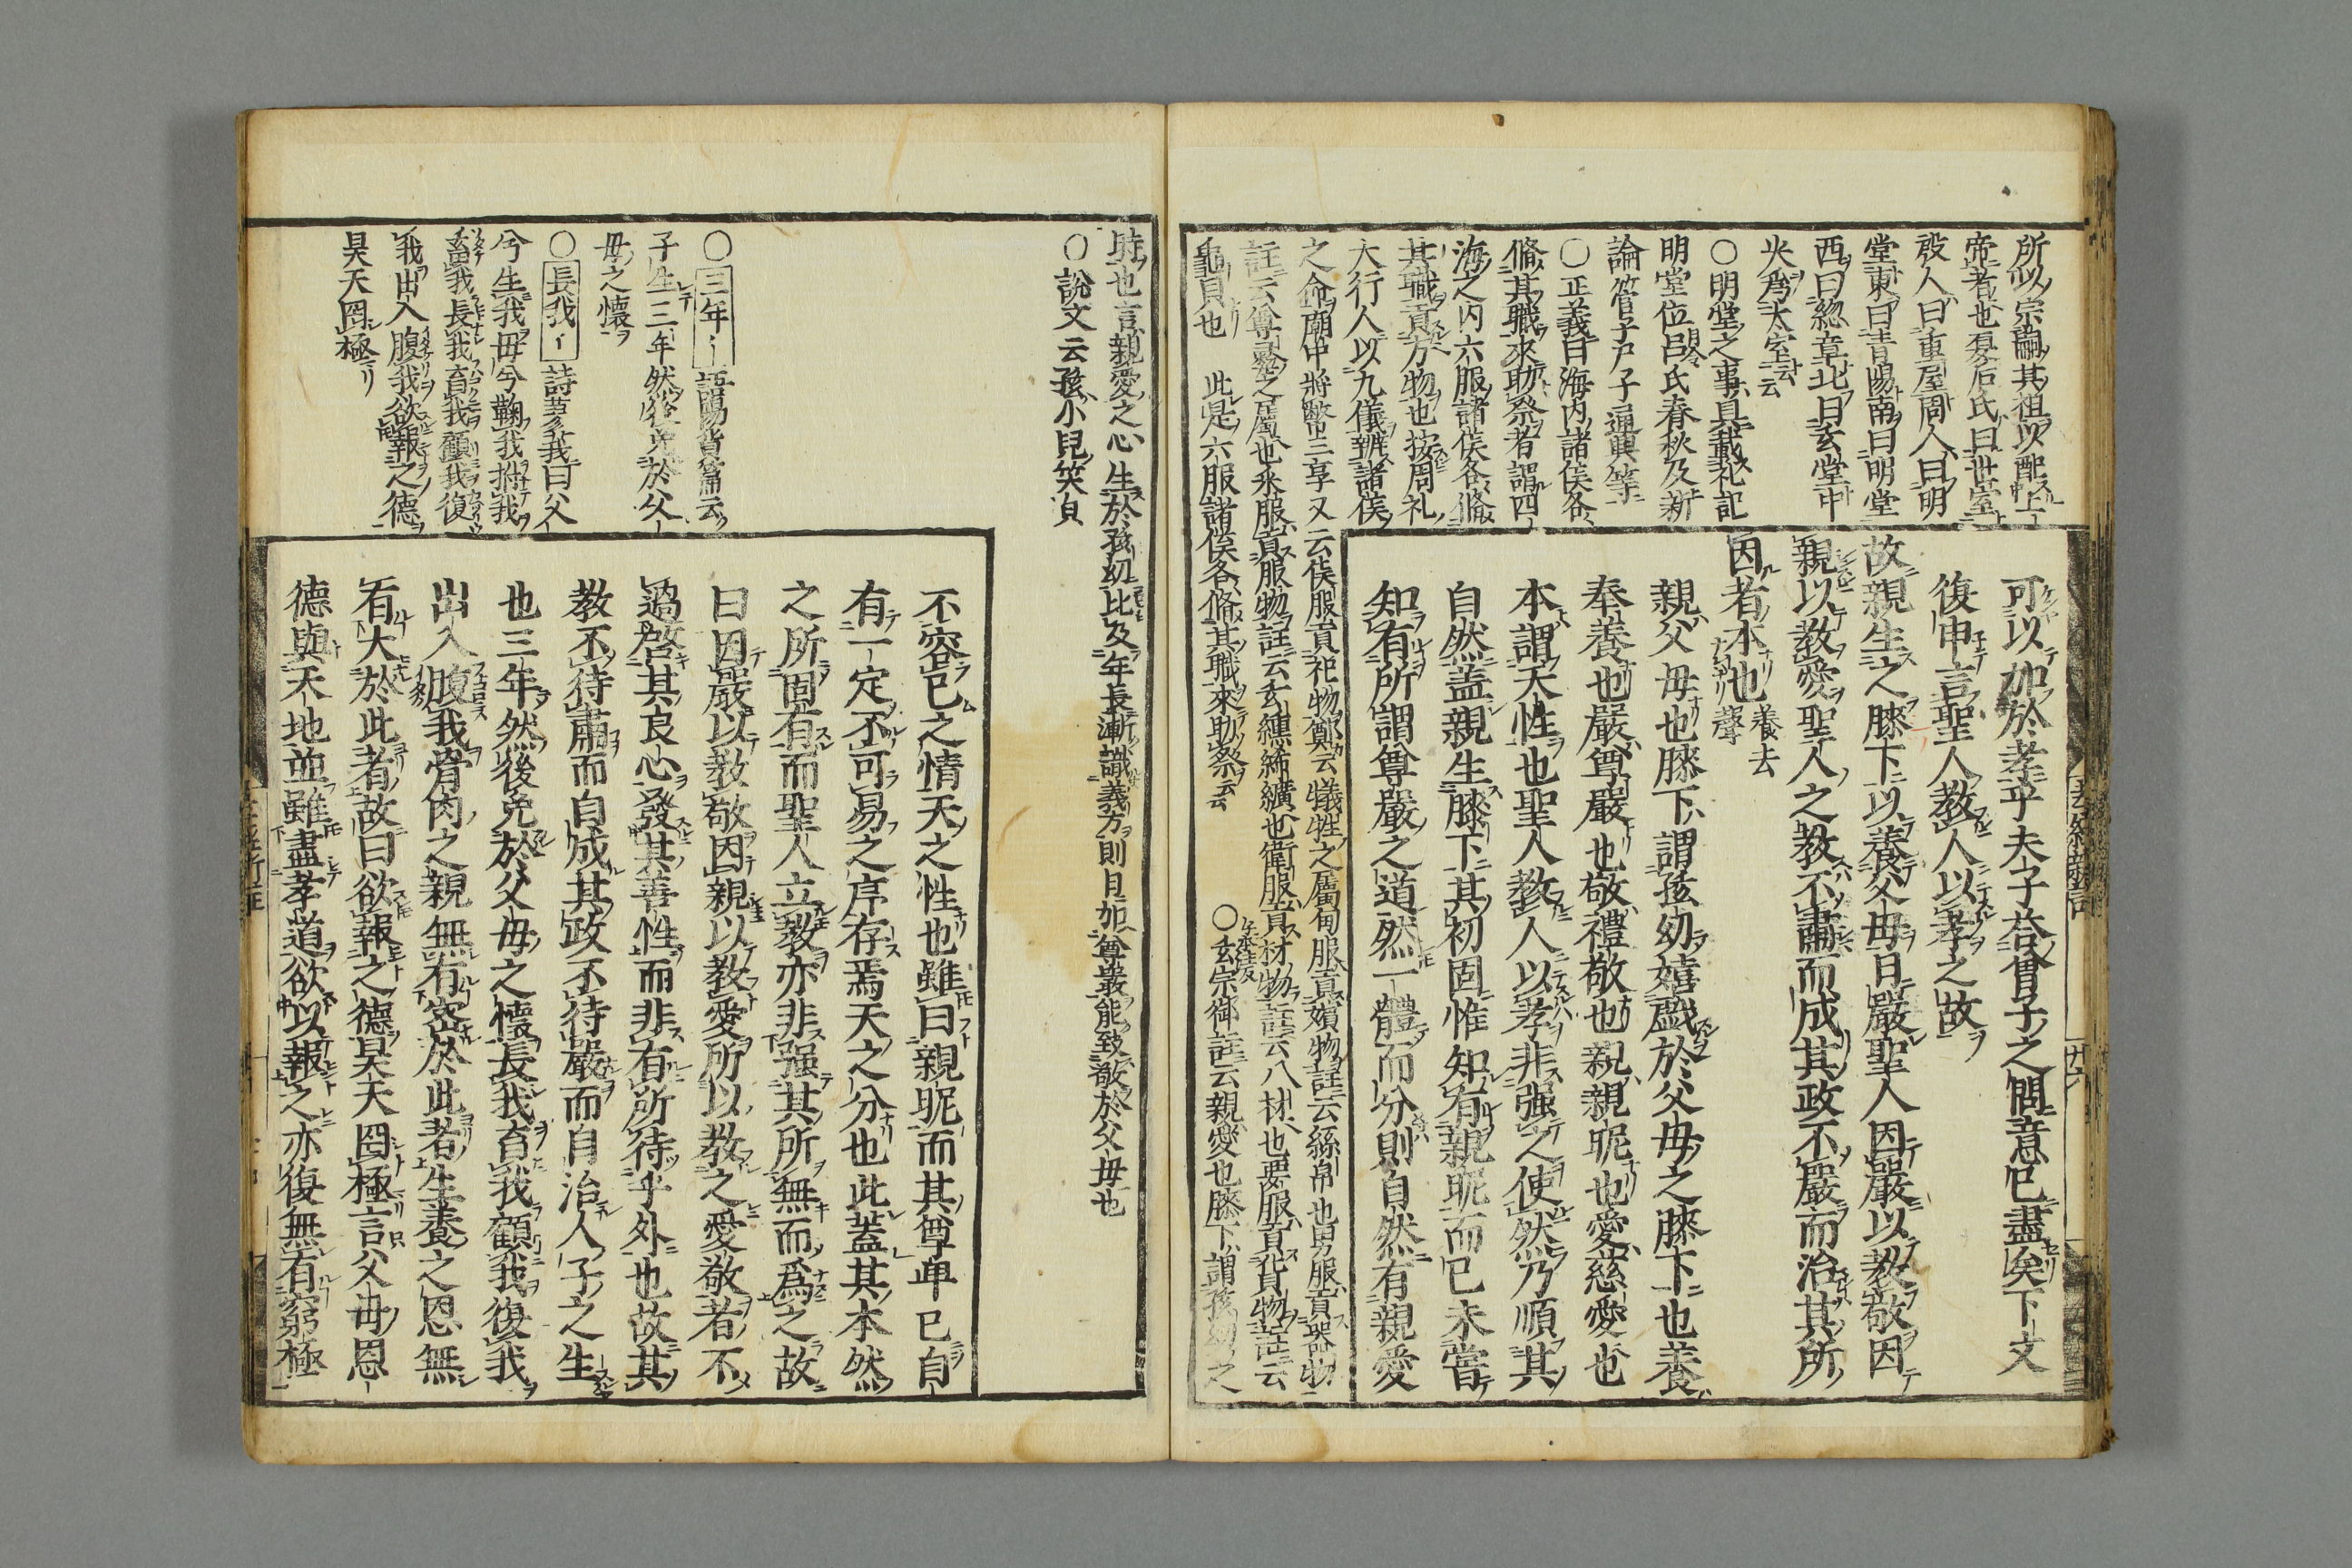 所以宗嗣其祖以配上
帝者也夏后氏曰世室
殷人曰重屋周人曰明
堂東曰青陽南曰明堂
西曰総章北曰玄堂中
央為太室云
〇明堂之事具載礼記
明堂位呂氏春秋及新
論管子尸子
〇正義曰海内諸侯各
脩其職來助祭者謂四
海之内六服諸侯各脩
其職貢方物也按周礼
大行人以九儀辨諸侯
之命廟中將幣三享又云侯服貢祀物鄭云犠牲之屬甸服貢嬪物註云絲帛也男服貢器物
註云尊彛之屬也采服貢服物註云玄纁絺纊也衛服貢材物註云八材也要服貢貨物註云
龜貝也 此是六服諸侯各脩其職來助祭云云 〇玄宗御註云親愛也膝下謂孩幼之
可以加於孝乎夫子荅曾子之問意已盡矣下文
復申言聖人教人以孝之故
故親生之膝下以養父母日嚴聖人因嚴以教敬因
親以教愛聖人之教不肅而成其政不嚴而治其所
因者本也養去聲
親父母也膝下謂孩幼嬉戯於父母之膝下也養
奉養也嚴尊嚴也敬禮敬也親親昵也愛慈愛也
本謂天性也聖人教人以孝非强之使然乃順其
自然盖親生膝下其初固惟知有親昵而已未嘗
知有所謂尊嚴之道然一體而分則自然有親愛
時也言親愛之心生於孩幼比及年長漸識義方則日加尊嚴能致敬於父母也
〇説文云孩小兒笑皃
〇三年〻語陽貨篇云
子生三年然後免於父
母之懐
〇長我〻詩蓼莪曰父
兮生我母兮鞠我拊我
畜我長我育我顧我復
我出入腹我欲報之德
昊天罔極
不容已之情天之性也雖曰親昵而其尊卑已自
有一定不可易之序存焉天之分也此蓋其本然
之所固有而聖人立教亦非强其所無而為之故
曰因嚴以教敬因親以教愛所以教之愛敬者不
過啓其良心發其善性而非有所待乎外也故其
教不待肅而自成其政不待嚴而自治人子之生
也三年然後免於父母之懐長我育我顧我復我
出入腹我骨肉之親無有密於此者生養之恩無
有大於此者故曰欲報之德昊天罔極言父母恩
德與天地並雖盡孝道欲以報之亦復無有窮極